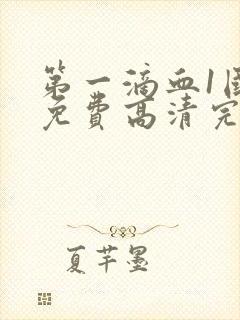 第一滴血1国
免费高清完
夏芊墨